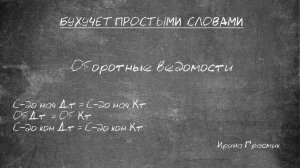 БУХУЧЕТ ПРОСТЫМИ СЛОВАМИ
Оборотные ведомости
С-до нач Дт = С-до нач Кт
Об Дт = Об Кт
С-до кон Дт = С-до кон Кт
Ирина